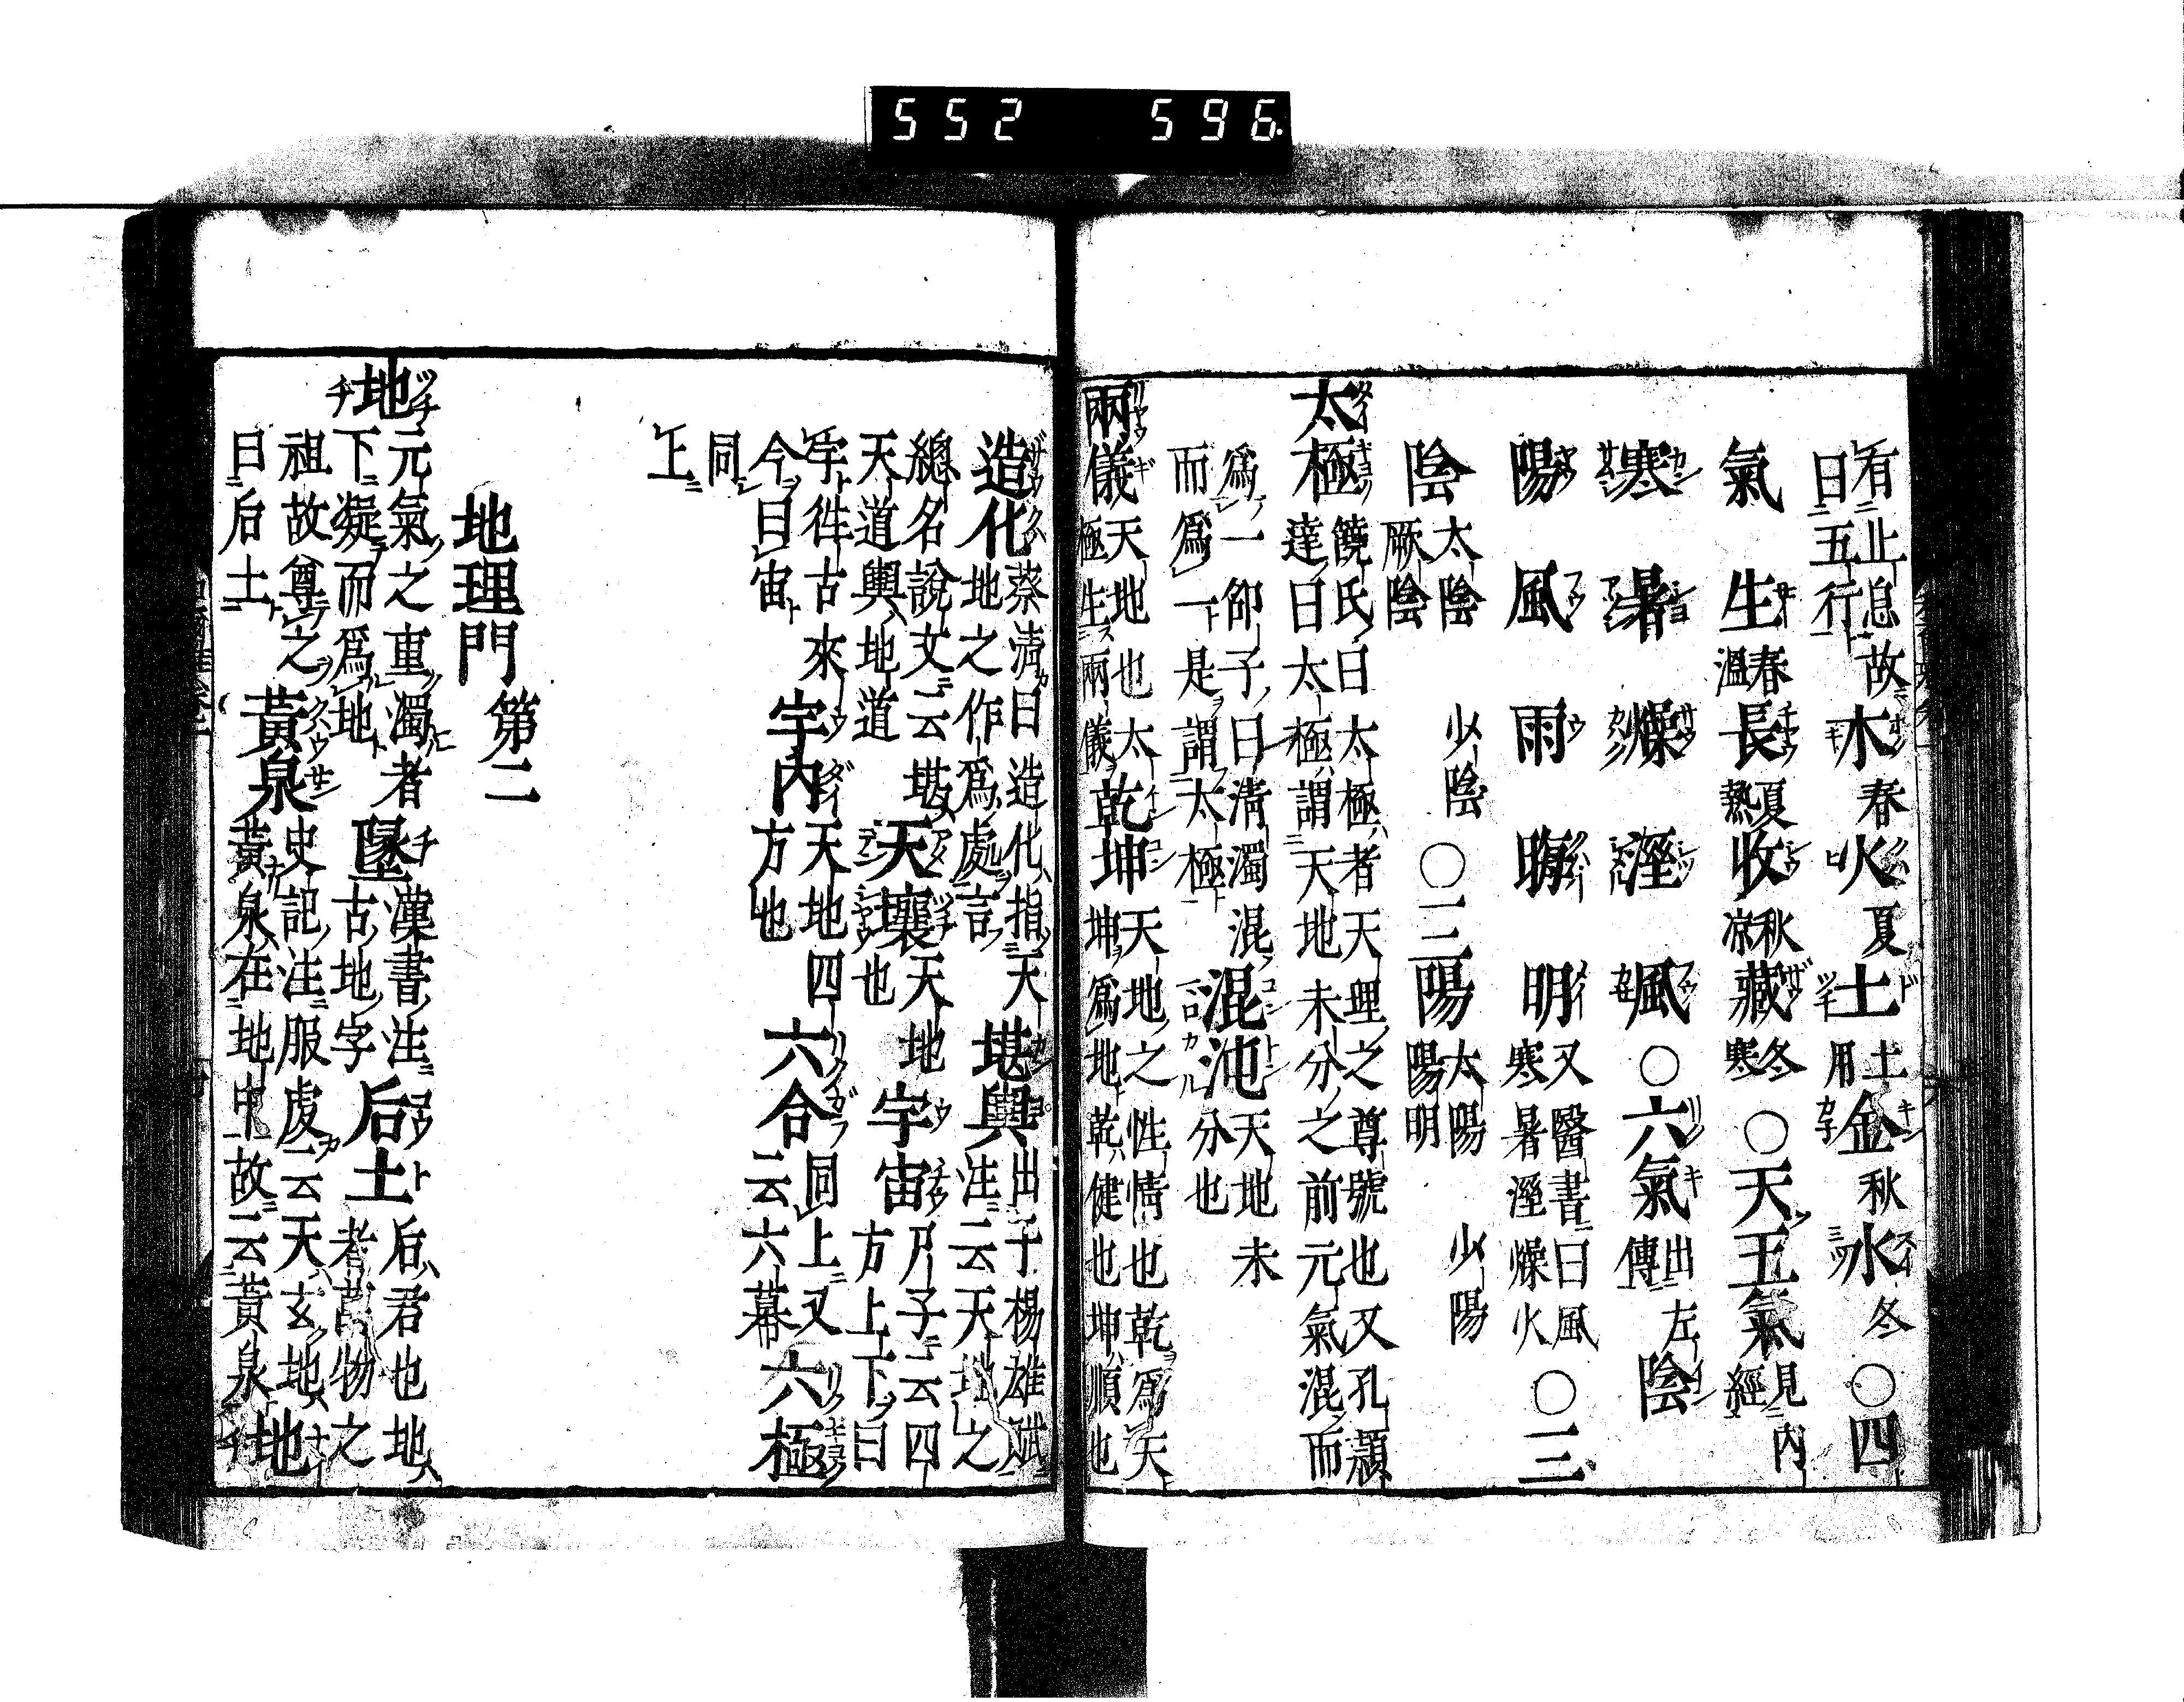 552 596
有止息故
曰五行
木 春 火 夏 土 土用 金 秋 水 冬 ○四
氣 生 春溫 長 夏熱 收 秋凉 藏 冬寒 ○天五氣 見內經
寒 暑 燥 溼 風 ○六氣 出左傳 陰
陽 風 雨 晦 明 又醫書曰風寒暑溼燥火 ○三
陰 太陰 少陰 厥陰 ○三陽 太陽 少陽 陽明
太極 饒氏曰太極者天理之尊號也又孔穎
達曰太極謂天地未分之前元氣混而
爲一仰子曰淸濁混
而爲一是謂太極 混沌 天地未分也
兩儀 天地也太極生兩儀 乾坤 天地之性情也乾爲天
坤爲地乾健也坤順也
造化 蔡淸曰造化指天
地之作爲處言 堪輿 出于楊雄賦
注云天地之
總名說文云堪
天道輿地道 天壤 天地也 宇宙 尸子云四
方上下曰
宇徃古來
今曰宙 宇內 天地四方也 六合 同上又云六幕 六極
同
上
地理門 第二
地 元氣之重濁者
下凝而爲地 墬 漢書注古地字 后土 后君也地
者萬物之
祖故尊之
曰后土 黃泉 史記注服虔云天玄地
黃泉在地中故云黃泉 地